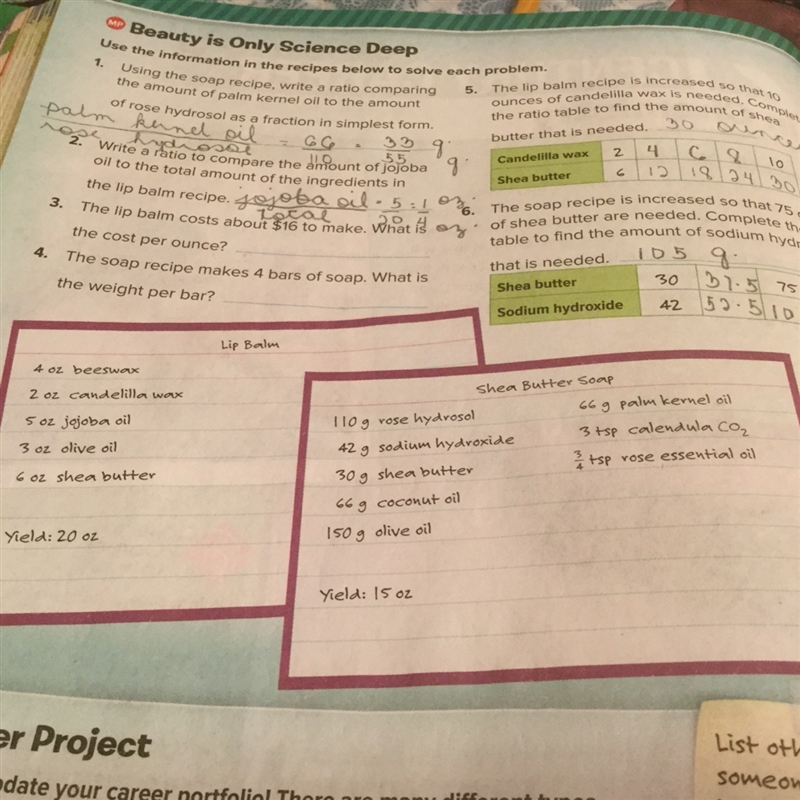 MP Beauty is Only Science Deep
Use the information in the recipes below to solve each problem.
1. Using the soap recipe, write a ratio comparing
the amount of palm kernel oil to the amount
of rose hydrosol as a fraction in simplest form.
palm kernel oil = 66 = 33 g.
rose hydrosol 110 55 g.
2. Write a ratio to compare the amount of jojoba
oil to the total amount of the ingredients in
the lip balm recipe. jojoba oil = 5 = 1 oz.
Total 20 4 oz.
3. The lip balm costs about $16 to make. What is
the cost per ounce?
4. The soap recipe makes 4 bars of soap. What is
the weight per bar?
5. The lip balm recipe is increased so that 10
ounces of candelilla wax is needed. Complet
the ratio table to find the amount of shea
butter that is needed. 30 ounce
Candelilla wax 2 4 6 8 10
Shea butter 6 12 18 24 30
6. The soap recipe is increased so that 75
of shea butter are needed. Complete th
table to find the amount of sodium hydr
that is needed. 105 g.
Shea butter 30 37.5 75
Sodium hydroxide 42 52.5 10
Lip Balm
4 oz beeswax
2 oz candelilla wax
5 oz jojoba oil
3 oz olive oil
6 oz shea butter
Yield: 20 oz
Shea Butter Soap
110 g rose hydrosol
42 g sodium hydroxide
30 g shea butter
66 g coconut oil
150 g olive oil
66 g palm kernel oil
3 tsp calendula CO₂
3/4 tsp rose essential oil
Yield: 15 oz
er Project
pdate your career portfolio! There are many different types
List oth
someon